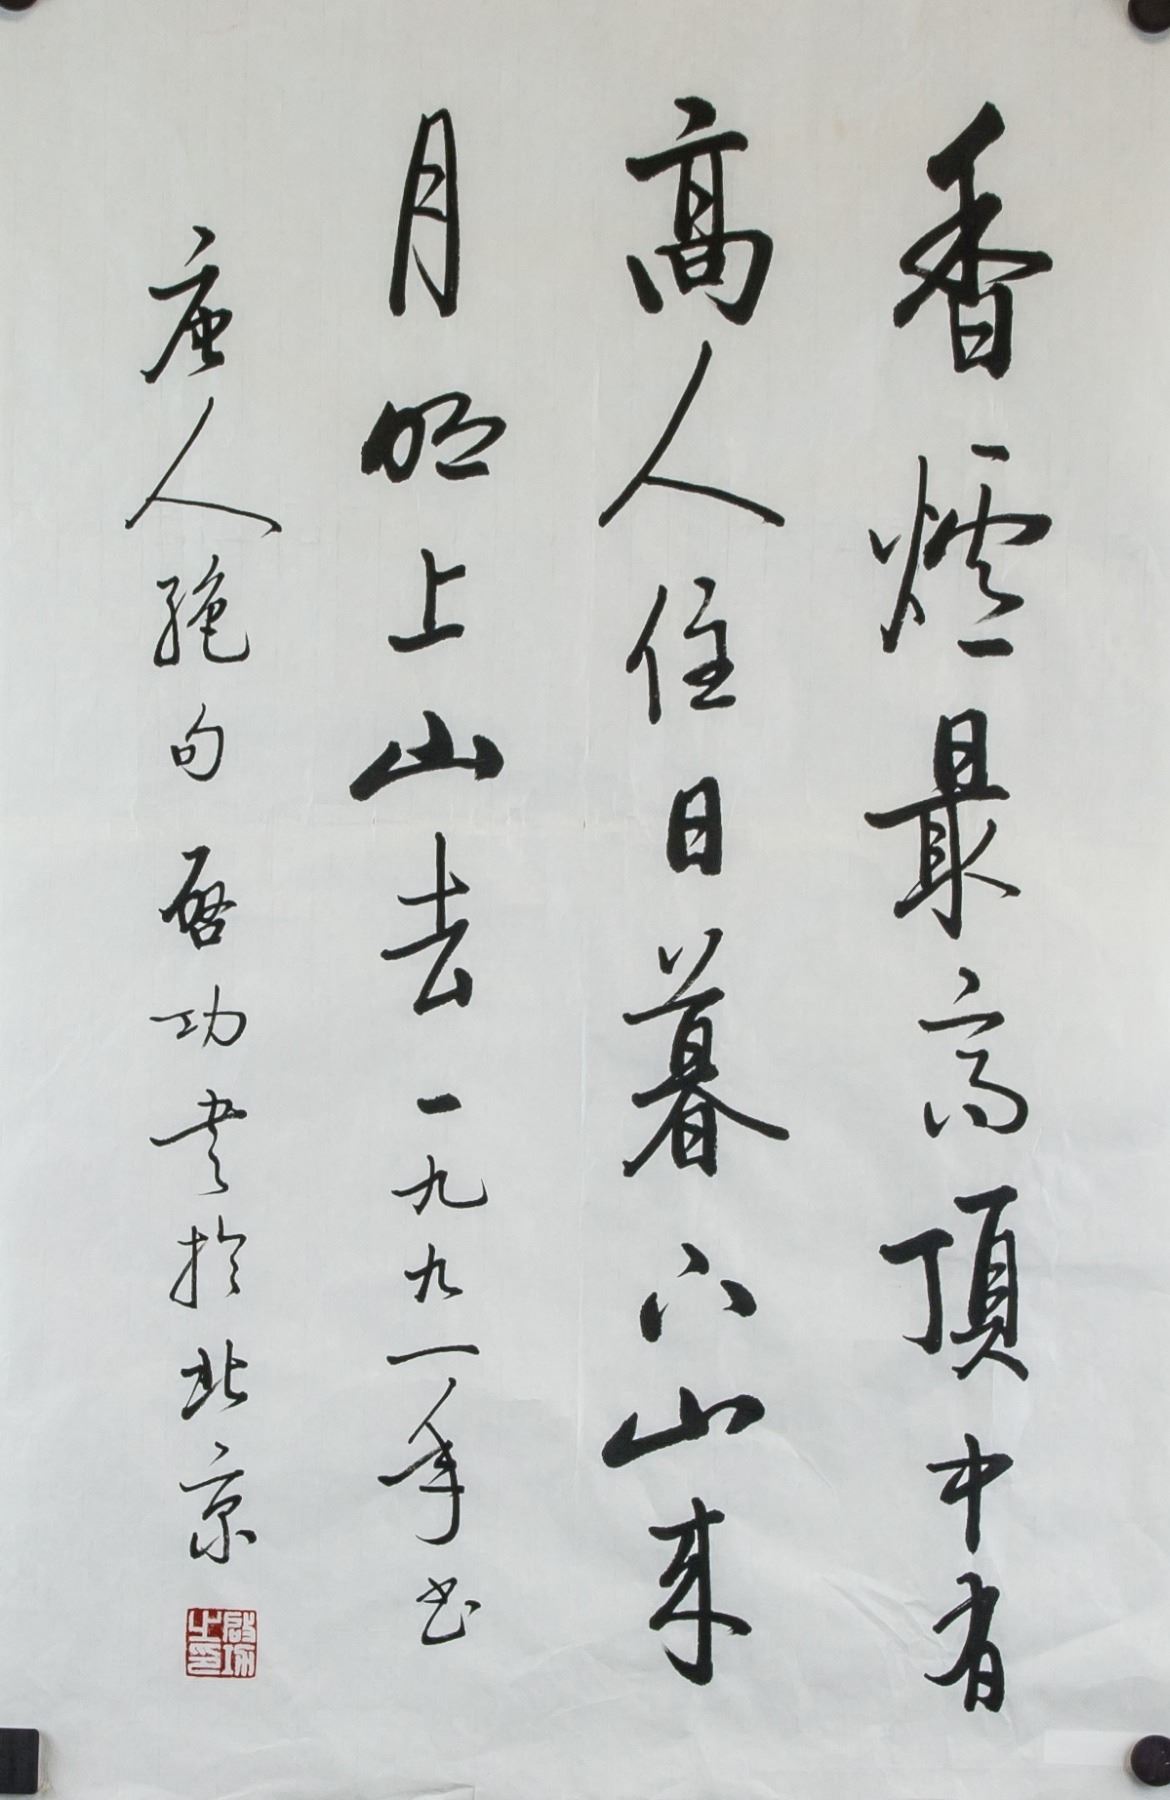 香爐最高頂中有
高人住日暮下山来
月明上山去一九九一年书
唐人絕句啓功書於北京
啟功之印